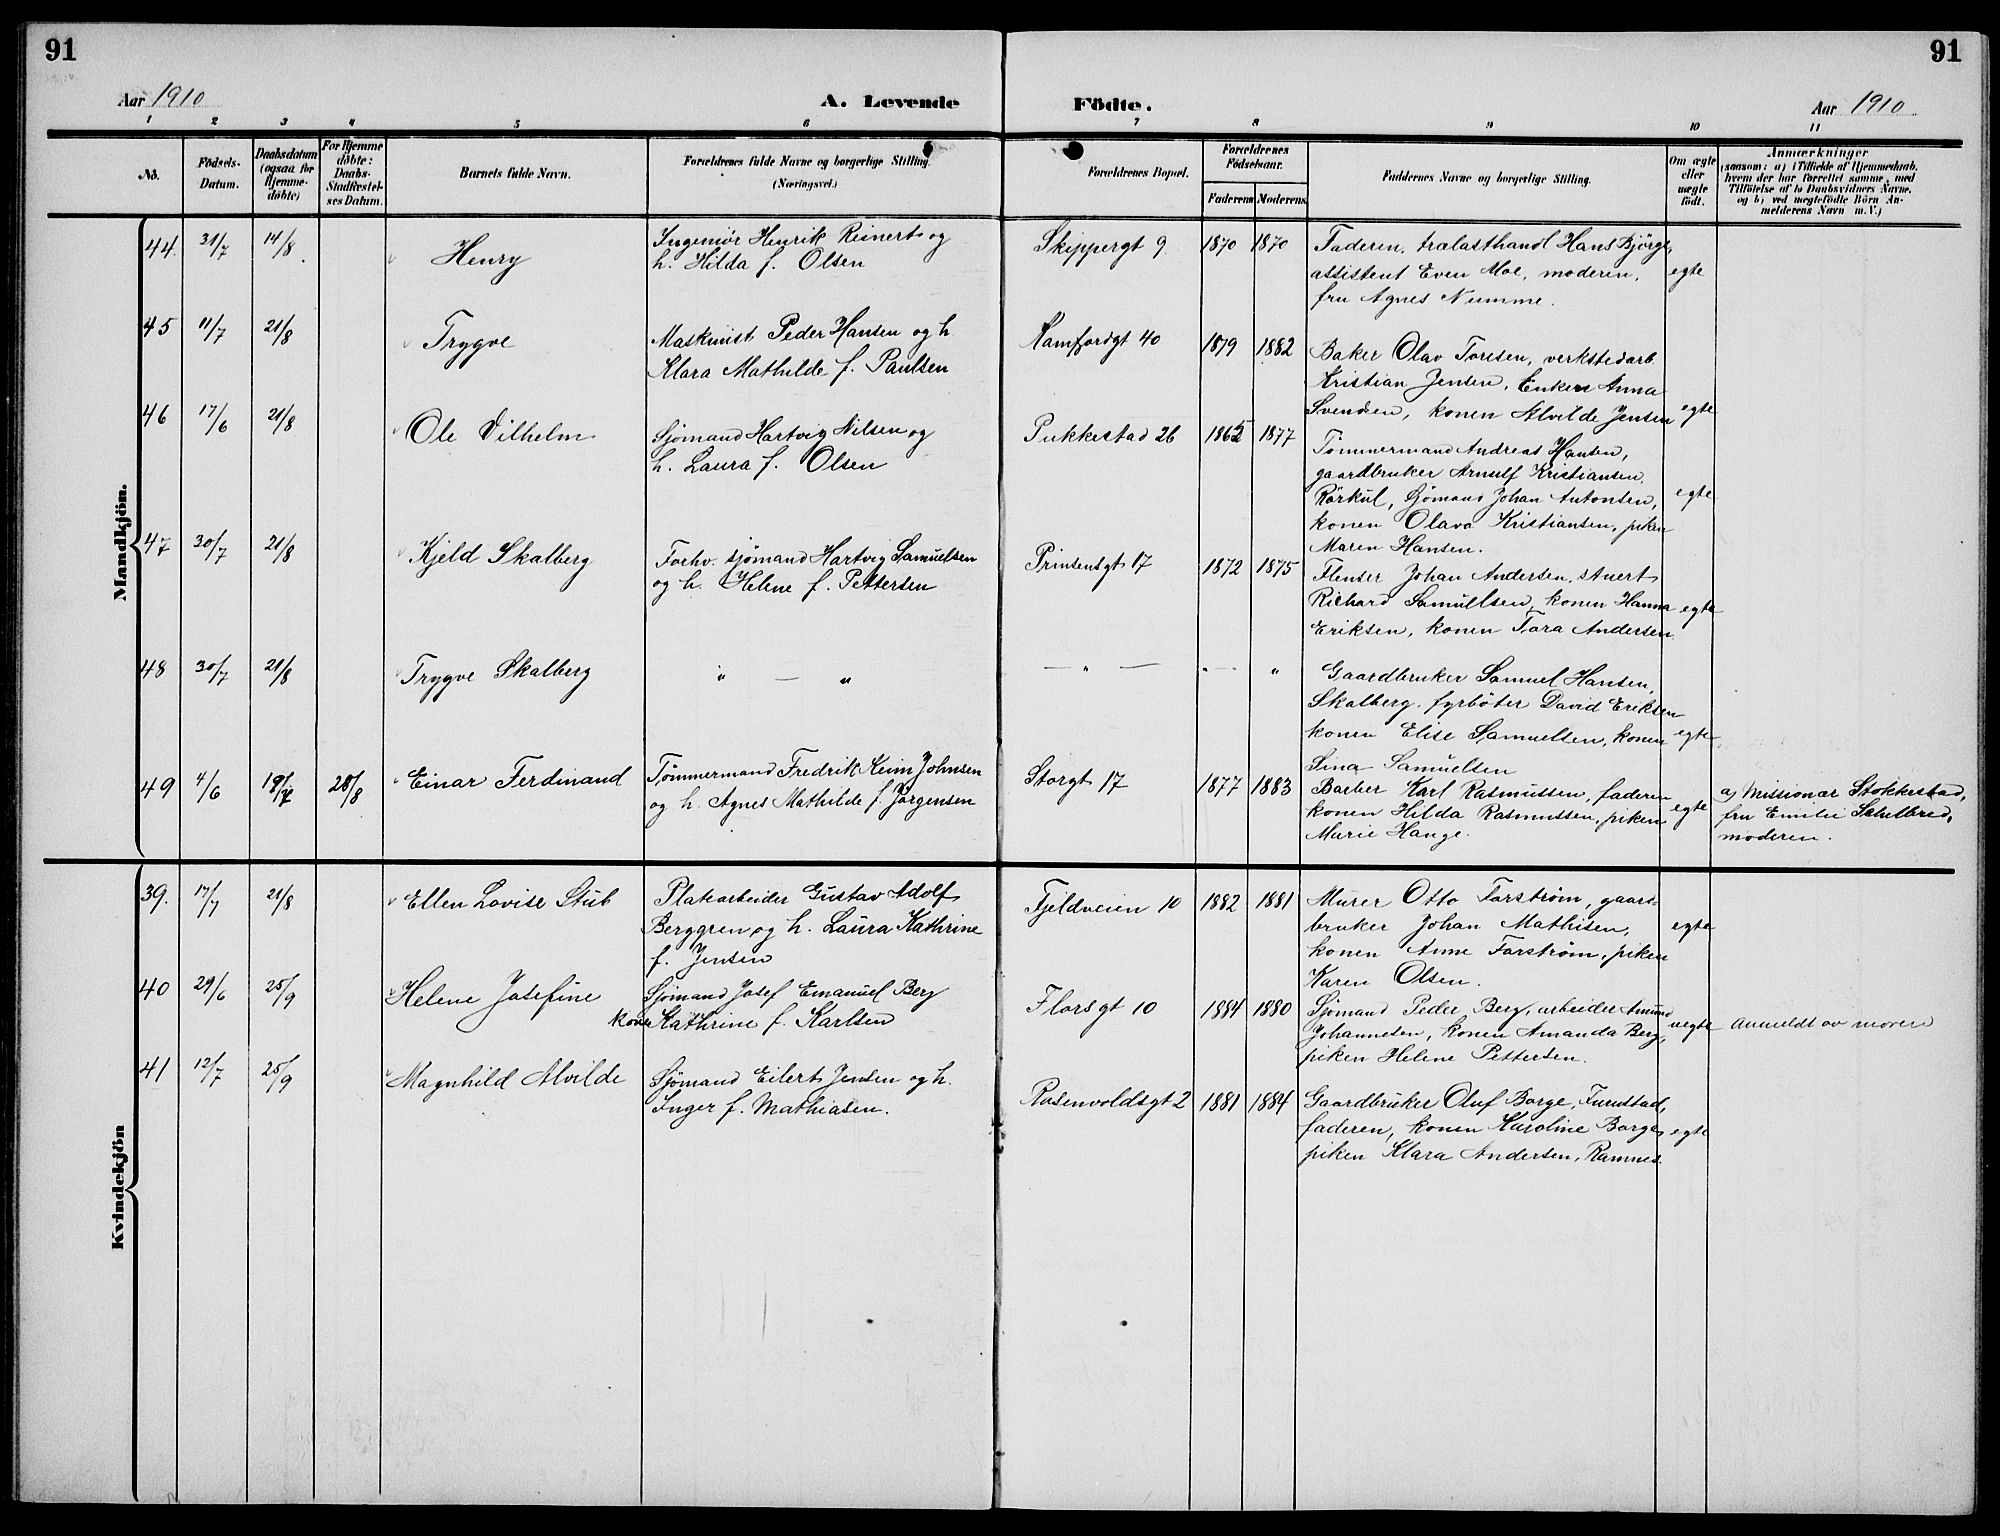 91
91
Aar 1910
A. Levende
Födte.
Aar 1910
1 2 3 4 5 6 7 8 9 10 11
No.
Födsels-
Datum.
Daabsdatum
(ogsaa for
Hjemme-
döbte)
For Hjemme
döbte:
Daabs-
Stadfæstel-
ses Datum.
Barnets fulde Navn.
Forældrenes fulde Navne og borgerlige Stilling.
(Næringsvei.)
Forældrenes Bopæl.
Forældrenes
Födselsaar.
Faderens Moderens
Faddernes Navne og borgerlige Stilling.
Om ægte
eller
uægte
födt.
Anmærkninger
(saasom: a) i Tilfælde af Hjemmedaab,
hvem der har forrettet samme, med
Tilföielse af to Daabsvidners Navne.
og b) ved uægtefödte Börn An-
melderens Navn m.V.)
Mandkjön.
44. 31/7 14/8
Henry
Ingeniør Henrik Reinert og
h. Hilda f. Olsen
Skippergt 9
1870 1870
Faderen, trælasthandl Hans Bjørge,
assistent Even Moe, moderen,
fru Agnes Numme.
egte
45 11/7 21/8
Trygve
Maskinist Peder Hansen og h.
Klara Mathilde f. Paulsen
Kamfjordgt 40
1879 1882
Baker Olav Toresen, verkstedarb.
Kristian Jensen, Enken Anna
Svendsen, konen Alvilde Jensen
egte
46 17/6 21/8
Ole Vilhelm
Sjømand Hartvig Nilsen og
h. Laura f. Olsen
Pukkestad 26
1865 1877
Tømmermand Andreas Hansen,
gaardbruker Arnulf Kristiansen,
Rørkul, Sjømand Johan Antonsen,
konen Olava Kristiansen, piken
Maren Hansen.
egte
47 30/7 21/8
Kjeld Skalberg
Forhv. sjømand Hartvig Samuelsen
og h. Helene f. Pettersen
Prinsensgt 17
1872 1875
Flenser Johan Andersen, stuert
Richard Samuelsen, konen Hanna
Eriksen, konen Tora Andersen.
egte
48 30/7 21/8
Trygve Skalberg
" — "
— " —
" — "
Gaardbruker Samuel Hansen,
Skalberg, fyrbøter David Eriksen
konen Elise Samuelsen, konen
Sina Samuelsen
egte
49 4/6 19/7 28/8
Einar Ferdinand
Tømmermand Fredrik Keim Johnsen
og h. Agnes Mathilde f. Jørgensen
Storgt 17
1877 1883
Barber Karl Rasmussen, faderen
konen Hilda Rasmussen, piken
Marie Hauge.
egte
a) Missionær Stokkestad,
fru Emilie Schelbred,
moderen.
Kvindekjön
39. 17/7 21/8
Ellen Lovise Stub
Platearbeider Gustav Adolf
Berggren og h. Laura Kathrine
f. Jensen
Fjeldveien 10
1882 1881
Murer Otto Farstrøm, gaard-
bruker Johan Mathisen,
konen Anne Farstrøm, piken
Karen Olsen.
egte
40 29/6 25/9
Helene Josefine
Sjømand Josef Emanuel Berg
kone Kathrine f. Karlsen
Florsgt 10
1884 1880
Sjømand Peder Berg, arbeider Amund
Johannesen, konen Amanda Berg,
piken Helene Pettersen.
uegte
Anmeldt av moren
41 12/7 25/9
Magnhild Alvilde
Sjømand Eilert Jensen og h.
Inger f. Mathiasen.
Rosenvoldsgt 2
1881 1884
Gaardbruker Oluf Borge, Furustad,
faderen, konen Karoline Borge,
piken Klara Andersen, Ramnes.
egte